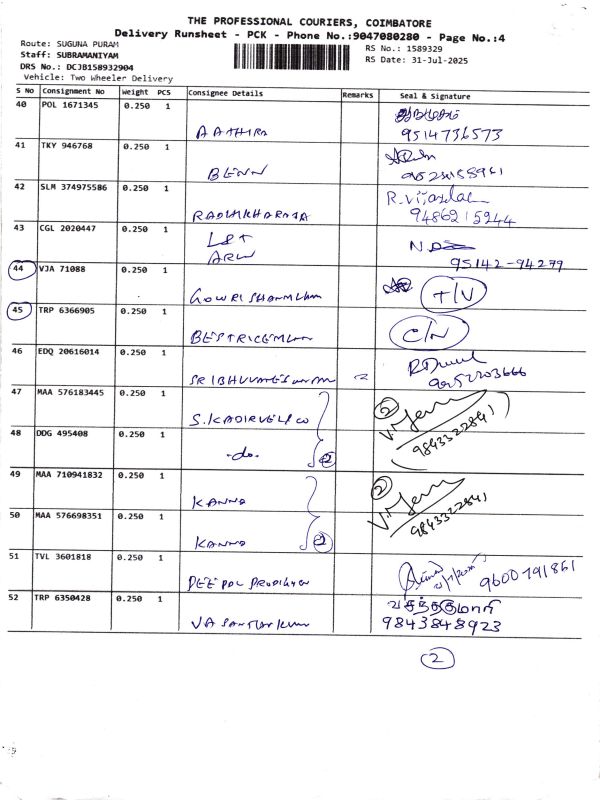 THE PROFESSIONAL COURIERS, COIMBATORE
Delivery Runsheet - PCK - Phone No.:9047080280 - Page No.:4
Route: SUGUNA PURAM
RS No.: 1589329
Staff: SUBRAMANIYAM
RS Date: 31-Jul-2025
DRS No.: DCJB158932904
Vehicle: Two Wheeler Delivery
S No Consignment No Weight PCS Consignee Details Remarks Seal & Signature
40 POL 1671345 0.250 1
AATHIRA
9514736573
41 TKY 946768 0.250 1
BENN
42 SLM 374975586 0.250 1
R. Vijayalac
RADHAKHARAJA
9486215244
43 CGL 2020447 0.250 1
L&T
ARW
95142-94279
44 VJA 71088 0.250 1
GOWRI SHANMUHAM
T/V
45 TRP 6366905 0.250 1
C/N
46 EDQ 20616014 0.250 1
47 MAA 576183445 0.250 1
2
S. KADIRVELU
9843322841
48 DDG 495408 0.250 1
-do-
2
49 MAA 710941832 0.250 1
2
KANNA
9843322841
50 MAA 576698351 0.250 1
KANNA
2
51 TVL 3601818 0.250 1
9600791861
52 TRP 6350428 0.250 1
வசந்தகுமாரி
9843848923
2